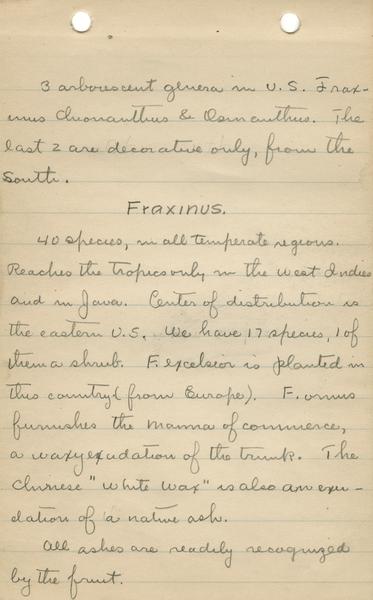 3 arborescent genera in U.S. Frax-
inus Chionanthus & Osmanthus. The
last 2 are decorative only, from the
South.
Fraxinus.
40 species, in all temperate regions.
Reaches the tropics only in the West Indies
and in Java. Center of distribution is
the eastern U.S. We have 17 species, 1 of
them a shrub. F. excelsior is planted in
this country (from Europe). F. ornus
furnishes the manna of commerce,
a waxy exudation of the trunk. The
Chinese "White wax" is also an exu-
dation of a native ash.
All ashes are readily recognized
by the fruit.